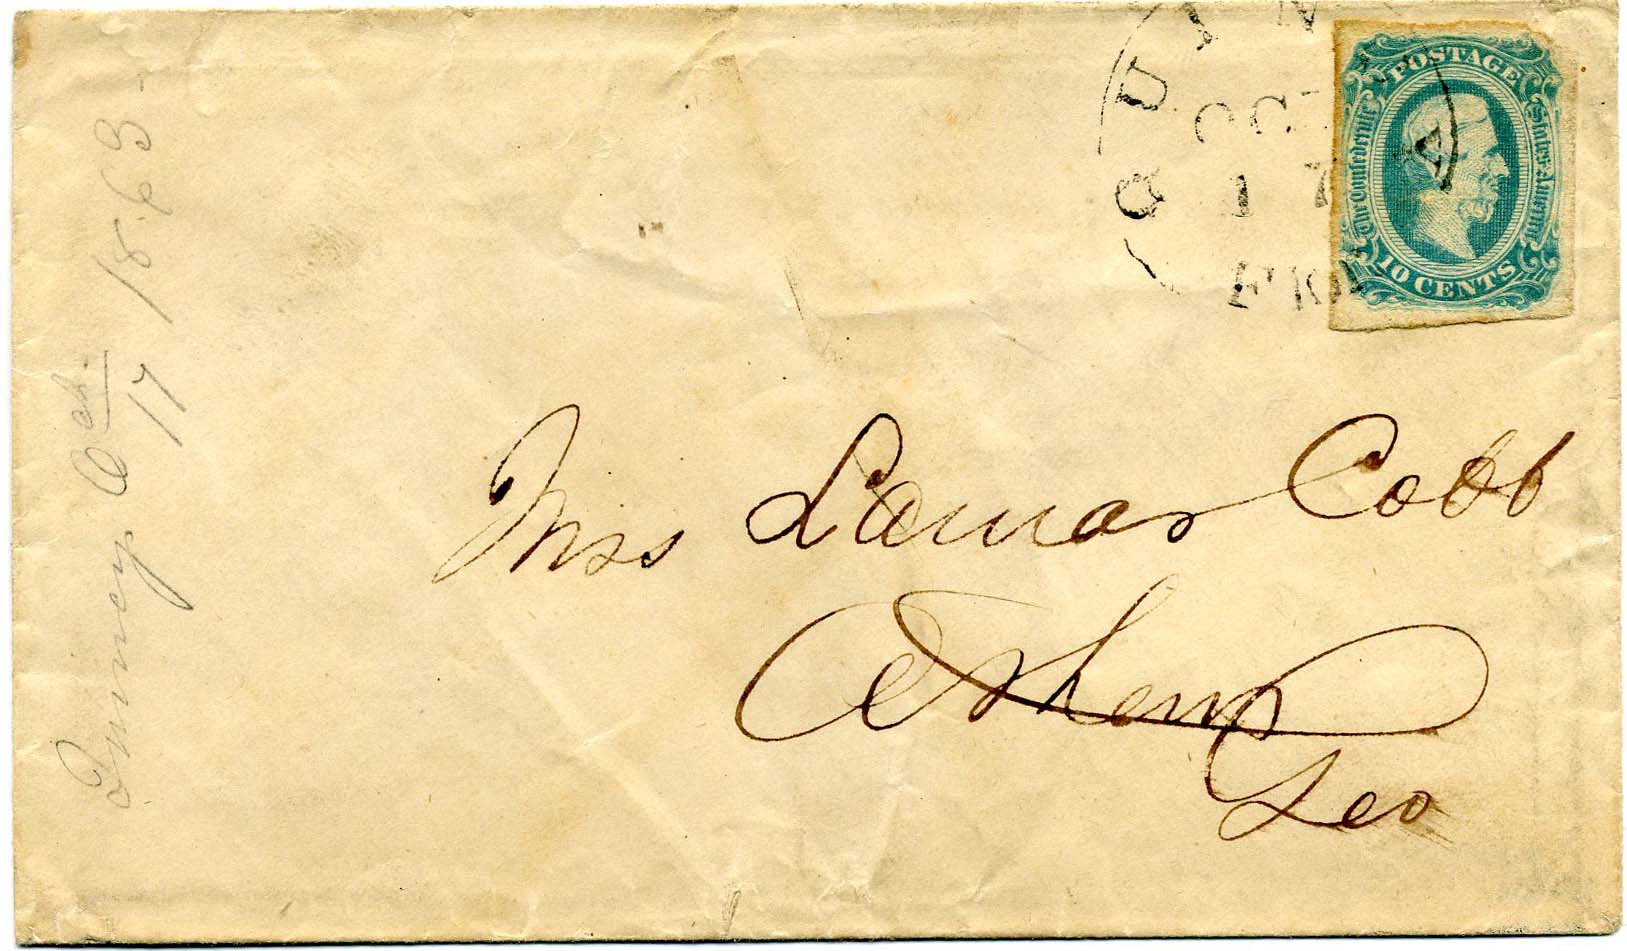 QUIN
OCT
17
A
POSTAGE
The Confederate States of America
10 CENTS
Mrs Lamar Cobb
Athens
Geo
Quincy Oct. 17 1863